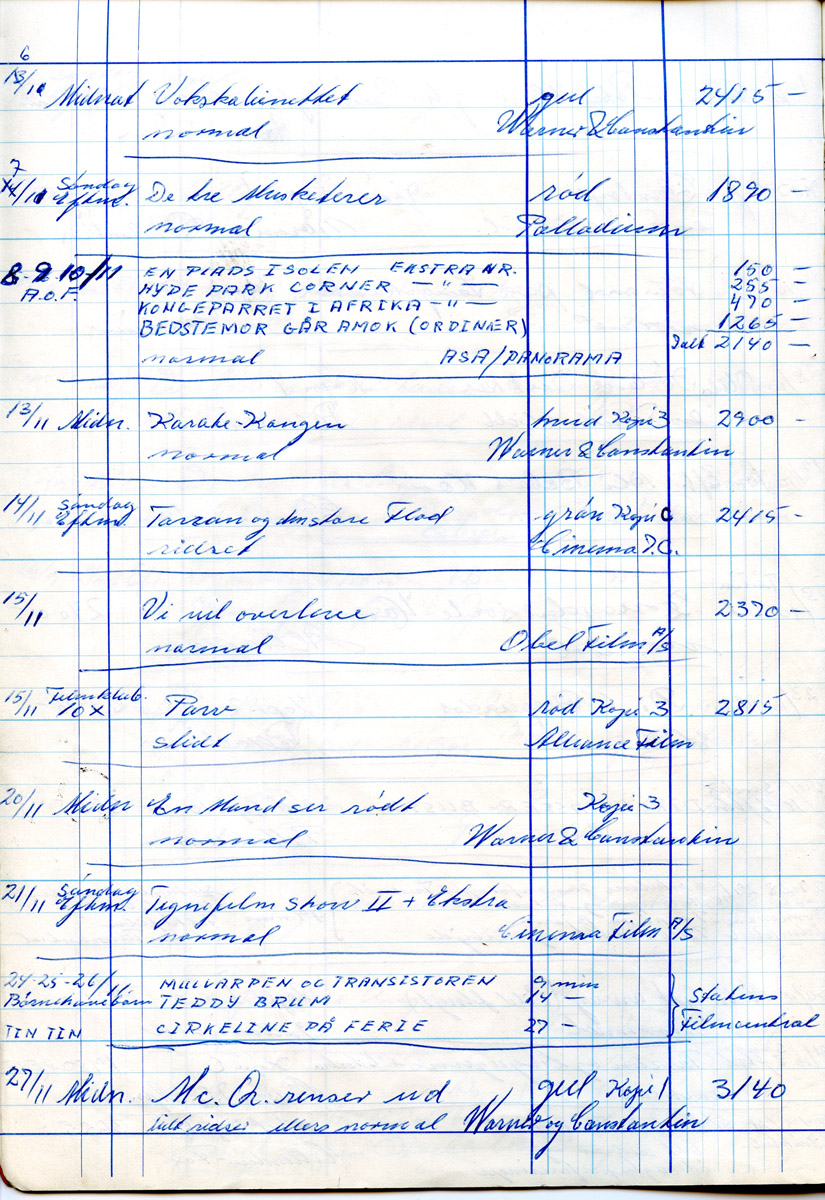 6
13/11 Midnat Vokskabinettet gul 2415 —
normal Warner & Constantin
7
14/11 Søndag Eftm. De tre Musketerer rød 1890 —
normal Palladium
8-9 10-/11 EN PLADS I SOLEN EKSTRANR. 150 —
A.O.F. HYDE PARK CORNER — " — 255 —
KONGEPARRET I AFRIKA — " — 470 —
BEDSTEMOR GÅR AMOK (ORDINÆR) 1265 —
normal ASA/PANORAMA Ialt 2140 —
13/11 Midn. Karate-Kongen hvid Kopi 3 2900 —
normal Warner & Constantin
14/11 Søndag Eftm. Tarzan og den store Flod grøn Kopi C 2415 —
ridset Cinema I.C.
15/11 Vi vil overleve 2370 —
normal Obel Film A/S
15/11 Filmklub. 10 x Parv rød Kopi 3 2815
slidt Alliance Film
20/11 Midn En Mand ser rødt Kopi 3
normal Warner & Constantin
21/11 Søndag Eftm. Tegnefilm Show II + Ekstra
normal Cinema Film A/S
24-25-26/11 MULVARPEN OG TRANSISTOREN 9 min
Børnehavebørn TEDDY BRUM 14 — Statens
TIN TIN CIRKELINE PÅ FERIE 27 — Filmcentral
27/11 Midn. Mc. Q. renser ud gul Kopi 1 3140
lidt ridser ellers normal Warner og Constantin